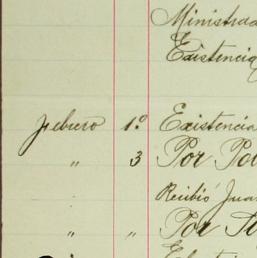 Ministrad
Existencia
febrero 1.º Existencia
" 3 Por
Recibió Jua
" " Por